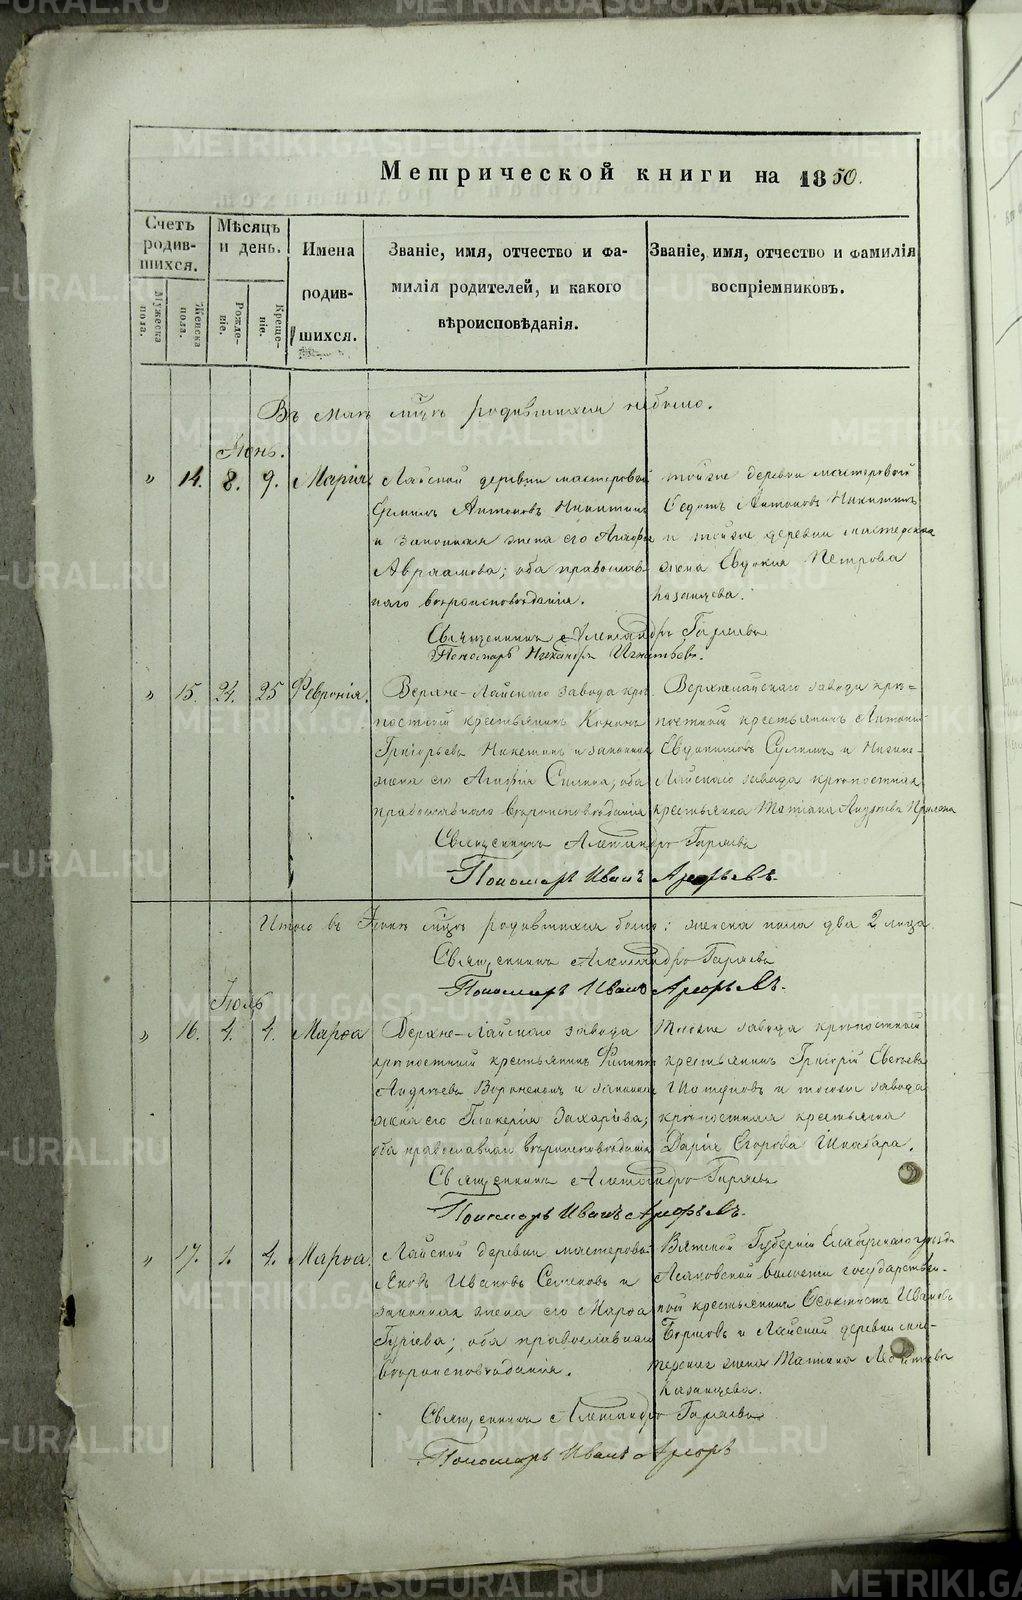 Метрической книги на 1850.
Счетъ родив-
шихся.
Мѣсяцъ
и день.
Имена
родив-
шихся.
Званіе, имя, отчество и фа-
милія родителей, и какого
вѣроисповѣданія.
Званіе, имя, отчество и фамилія
воспріемниковъ.
Мужеска
пола.
Женска
пола.
Рожде-
ніе.
Креще-
ніе.
Въ маѣ мцѣ родившихся небыло.
Іюнь.
" 14. 8. 9. Марія
Лайской деревни мастеровой
Антоновъ Никитинъ
и законная жена его Агафья
Авраамова; оба православ
наго вѣроисповѣданія.
тойже деревни мастеровой
Федотъ Антоновъ Никитинъ
и тойже деревни мастерская
жена Евдокия Петрова
Казанцева.
Священникъ Александръ Гаряевъ
Пономарь Никаноръ Игнатьевъ.
" 15. 24. 25 Февронія.
Верхне-Лайскаго завода крѣ
постной крестьянинъ Кононъ
Григорьевъ Никитинъ и законная
жена его Агафія Силина; оба
православнаго вѣроисповѣданія
Верхнелайскаго завода крѣ=
постной крестьянинъ Антонъ
Евдокимовъ и Нижне-
Лайскаго завода крѣпостная
крестьянка Татіана Андреева
Священникъ Александръ Гаряевъ
Пономарь Иванъ Арефьевъ.
Итого въ Іюнѣ мцѣ родившихся было: женска пола два 2 лица.
Священникъ Александръ Гаряевъ
Пономарь Иванъ Арефьевъ.
Іюль
" 16. 4. 4. Марѳа
Верхне-Лайскаго завода
крѣпостный крестьянинъ Филиппъ
Андреевъ и законная
жена его Гликерія Захарова;
оба православнаго вѣроисповѣданія
Тогоже завода крѣпостный
крестьянинъ Григорій
и тогоже завода
крѣпостная крестьянка
Дарія Егорова
Священникъ Александръ Гаряевъ
Пономарь Иванъ Арефьевъ.
" 17. 1. 4. Марѳа.
Лайской деревни мастеровой
Яковъ Ивановъ Семеновъ и
законная жена его Марѳа
Гуріева; оба православнаго
вѣроисповѣданія.
Вятской Губерніи Елабужскаго уѣзда
волости государствен-
ной крестьянинъ Ѳеоктистъ Ивановъ
и Лайской деревни мас-
терская жена Татіана
Казанцева.
Священникъ Александръ Гаряевъ
Пономарь Иванъ Арефь
METRIKI.GASO-URAL.RU